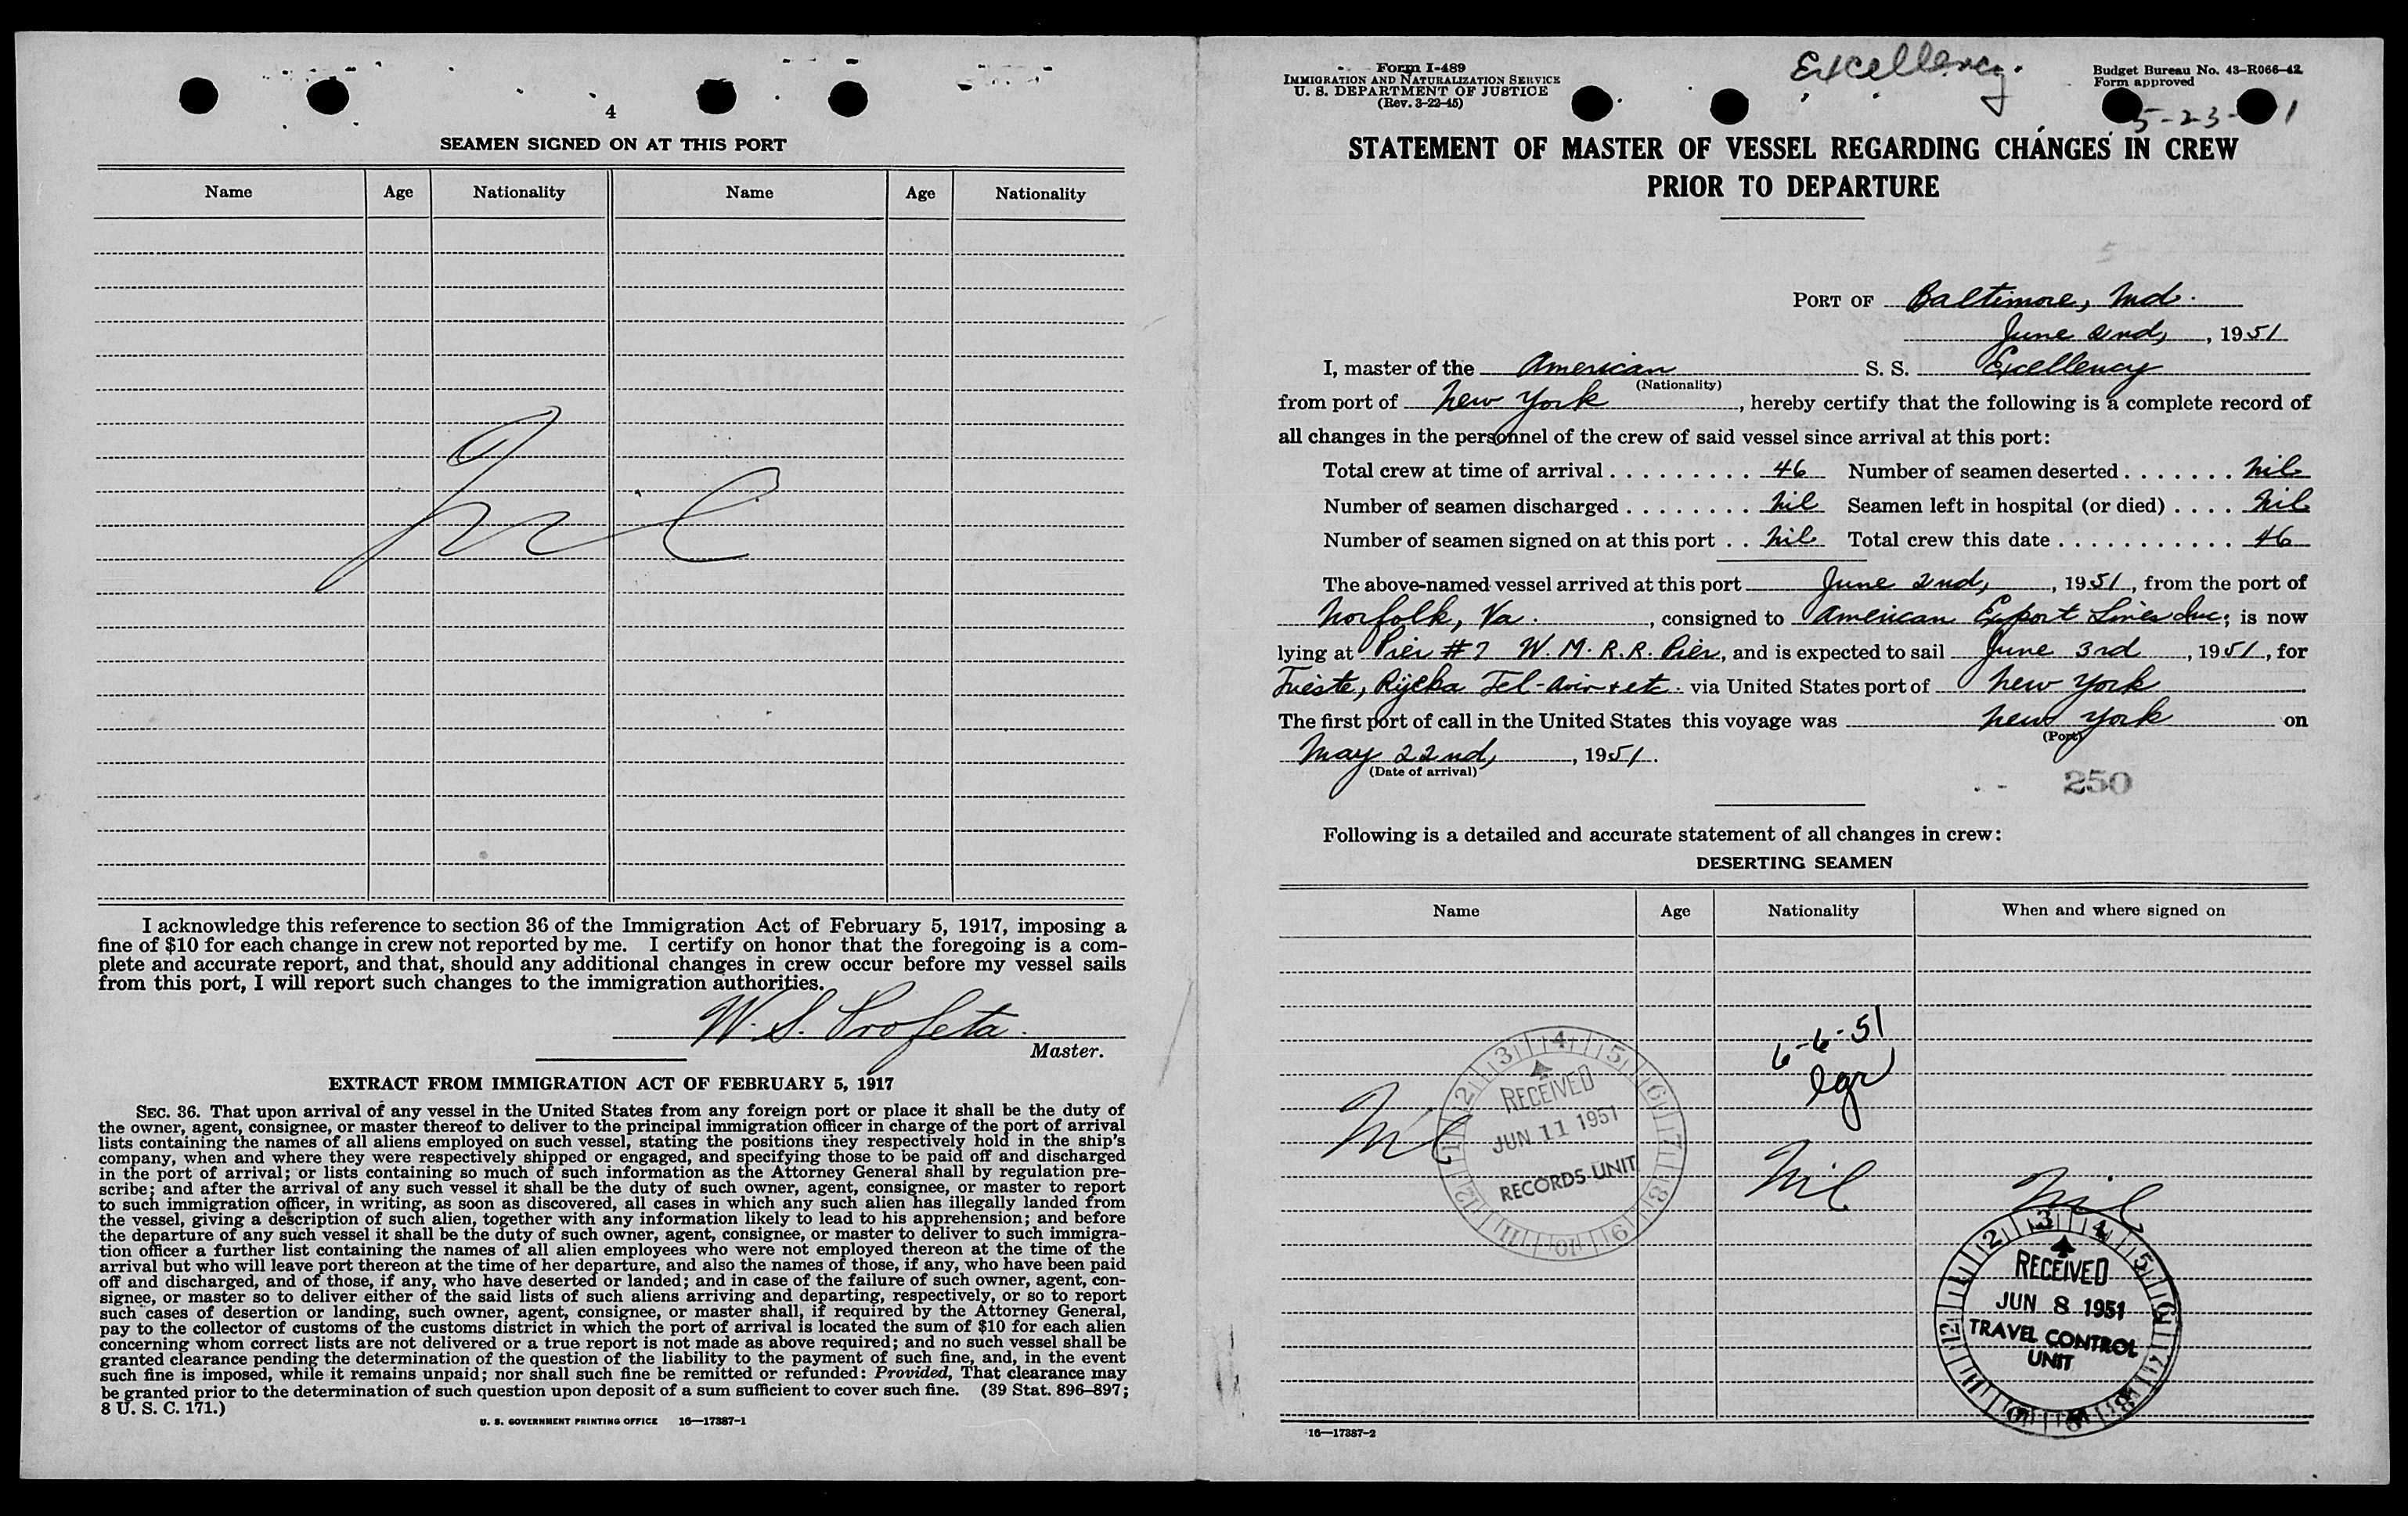 4
SEAMEN SIGNED ON AT THIS PORT
Name Age Nationality Name Age Nationality
Nil
I acknowledge this reference to section 36 of the Immigration Act of February 5, 1917, imposing a
fine of $10 for each change in crew not reported by me. I certify on honor that the foregoing is a com-
plete and accurate report, and that, should any additional changes in crew occur before my vessel sails
from this port, I will report such changes to the immigration authorities.
W. S. Profeta.
Master.
EXTRACT FROM IMMIGRATION ACT OF FEBRUARY 5, 1917
SEC. 36. That upon arrival of any vessel in the United States from any foreign port or place it shall be the duty of
the owner, agent, consignee, or master thereof to deliver to the principal immigration officer in charge of the port of arrival
lists containing the names of all aliens employed on such vessel, stating the positions they respectively hold in the ship's
company, when and where they were respectively shipped or engaged, and specifying those to be paid off and discharged
in the port of arrival; or lists containing so much of such information as the Attorney General shall by regulation pre-
scribe; and after the arrival of any such vessel it shall be the duty of such owner, agent, consignee, or master to report
to such immigration officer, in writing, as soon as discovered, all cases in which any such alien has illegally landed from
the vessel, giving a description of such alien, together with any information likely to lead to his apprehension; and before
the departure of any such vessel it shall be the duty of such owner, agent, consignee, or master to deliver to such immigra-
tion officer a further list containing the names of all alien employees who were not employed thereon at the time of the
arrival but who will leave port thereon at the time of her departure, and also the names of those, if any, who have been paid
off and discharged, and of those, if any, who have deserted or landed; and in case of the failure of such owner, agent, con-
signee, or master so to deliver either of the said lists of such aliens arriving and departing, respectively, or so to report
such cases of desertion or landing, such owner, agent, consignee, or master shall, if required by the Attorney General,
pay to the collector of customs of the customs district in which the port of arrival is located the sum of $10 for each alien
concerning whom correct lists are not delivered or a true report is not made as above required; and no such vessel shall be
granted clearance pending the determination of the question of the liability to the payment of such fine, and, in the event
such fine is imposed, while it remains unpaid; nor shall such fine be remitted or refunded: Provided, That clearance may
be granted prior to the determination of such question upon deposit of a sum sufficient to cover such fine. (39 Stat. 896–897;
8 U. S. C. 171.)
U. S. GOVERNMENT PRINTING OFFICE 16—17387-1
Form I-489
IMMIGRATION AND NATURALIZATION SERVICE
U. S. DEPARTMENT OF JUSTICE
(Rev. 3-22-45)
Excellency.
Budget Bureau No. 43-R066-42
Form approved
5-23- 1
STATEMENT OF MASTER OF VESSEL REGARDING CHANGES IN CREW
PRIOR TO DEPARTURE
PORT OF Baltimore, Md.
June 2nd, , 1951
I, master of the American S. S. Excellency
(Nationality)
from port of New York , hereby certify that the following is a complete record of
all changes in the personnel of the crew of said vessel since arrival at this port:
Total crew at time of arrival . . . . . . . . . . 46 Number of seamen deserted . . . . . . . nil
Number of seamen discharged . . . . . . . . nil Seamen left in hospital (or died) . . . . nil
Number of seamen signed on at this port . . nil Total crew this date . . . . . . . . . . . 46
The above-named vessel arrived at this port June 2nd, , 1951, from the port of
Norfolk, Va. , consigned to American Export Lines Inc; is now
lying at Pier #7 W. M. R.R. Pier, and is expected to sail June 3rd , 1951, for
Trieste, Rijeka Tel-Aviv + etc. via United States port of New York
The first port of call in the United States this voyage was New York on
(Port)
May 22nd, , 1951.
(Date of arrival)
250
Following is a detailed and accurate statement of all changes in crew:
DESERTING SEAMEN
Name Age Nationality When and where signed on
6-6-51
lgr
Nil Nil Nil
1 2 3 4 5 6 7 8 9 10 11 12
RECEIVED
JUN 11 1951
RECORDS UNIT
1 2 3 4 5 6 7 8 9 10 11 12
RECEIVED
JUN 8 1951
TRAVEL CONTROL
UNIT
16—17387-2